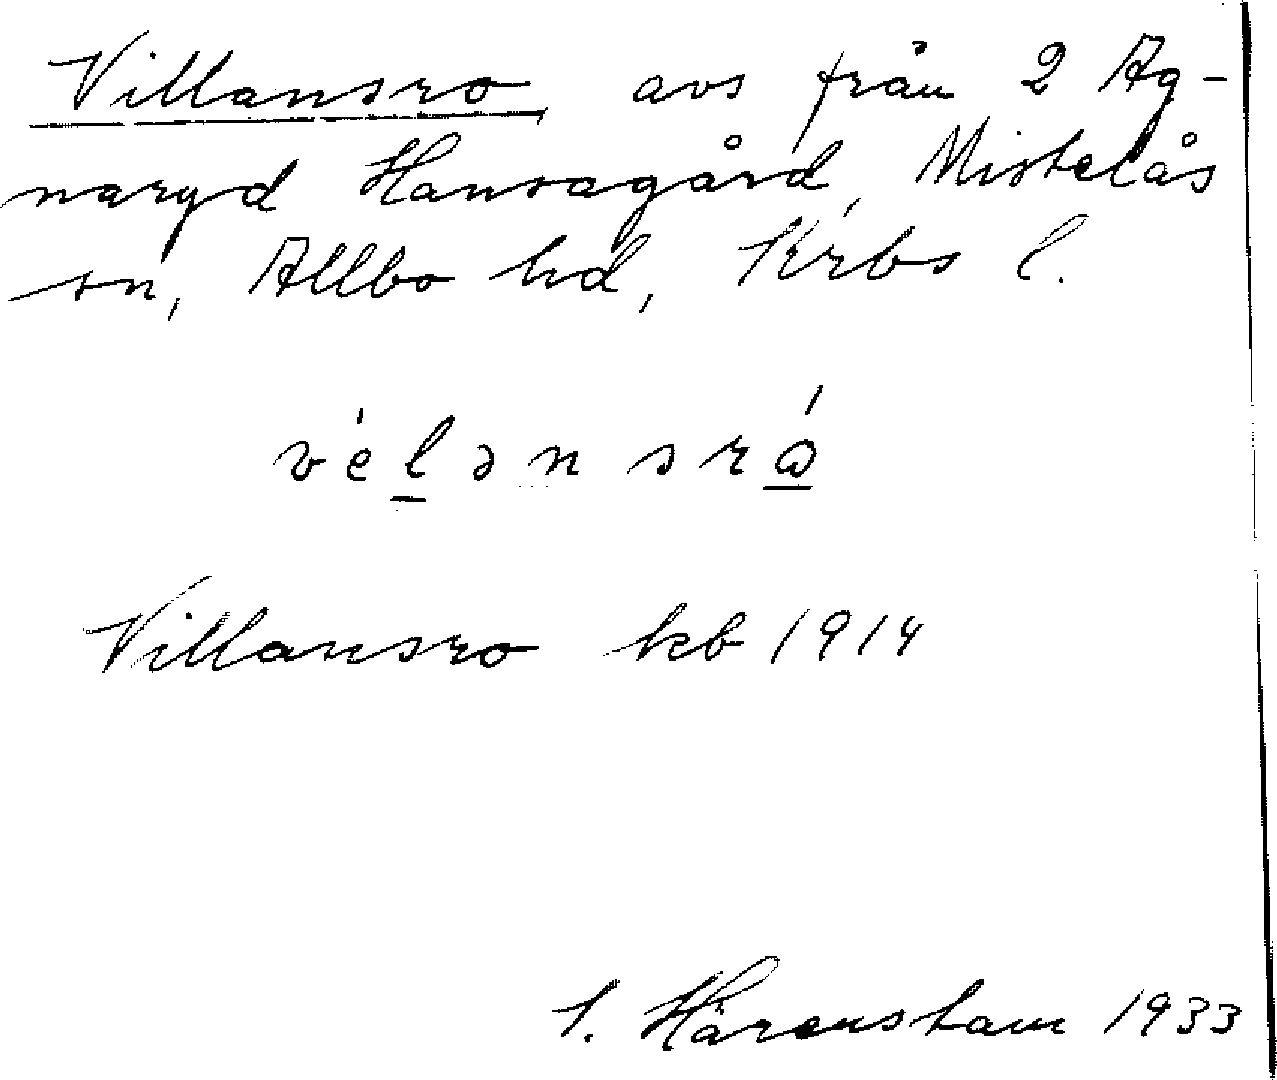 Villansro, avs från 2 Ag-
naryd Hansagård, Mistelås
sn, Allbo hd, Krbs l.
vélənsrǻ
Villansro kb 1914
S. Härenstam 1933